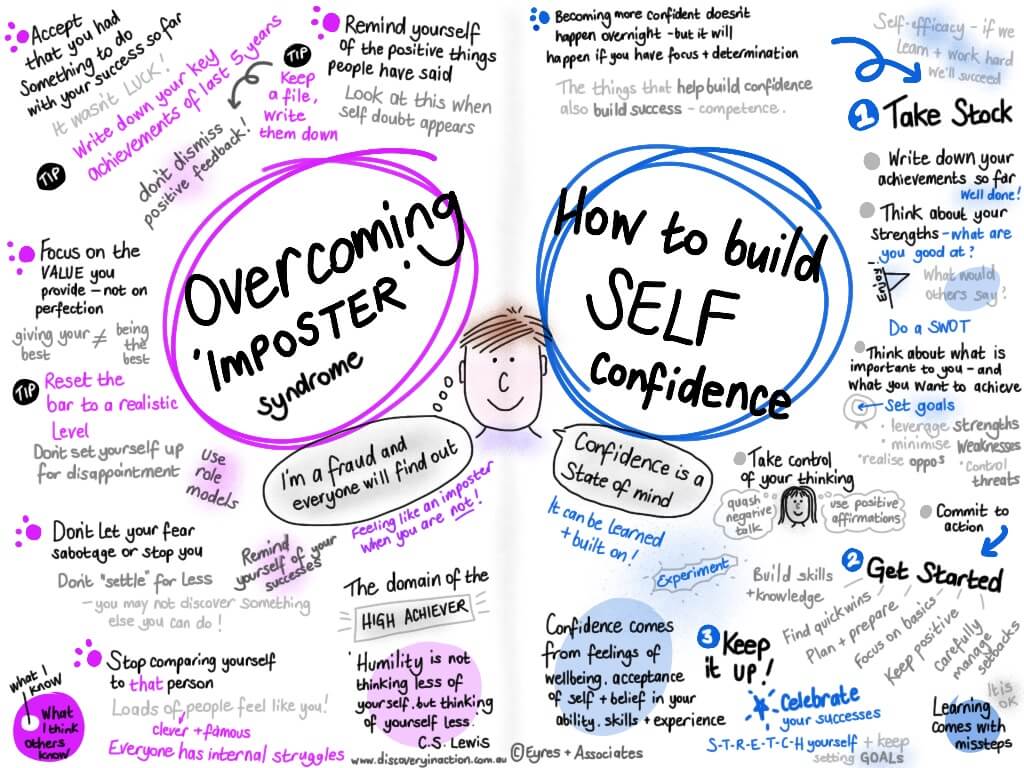 Accept
that you had
Something to do
with your success so far
It wasn't LUCK!
TIP
Write down your key
achievements of last 5 years
Remind yourself
of the positive things
people have said
TIP
Keep
a file,
write
them down
Look at this when
self doubt appears
don't dismiss
positive feedback!
Overcoming
'IMPOSTER'
syndrome
Focus on the
VALUE you
provide - not on
perfection
giving your ≠ being
best the
best
TIP
Reset the
bar to a realistic
Level
Don't set yourself up
for disappointment
Use
role
models
I'm a fraud and
everyone will find out
Feeling like an imposter
when you are not!
Don't Let your fear
sabotage or stop you
Don't "settle" for Less
- you may not discover something
else you can do!
Remind
yourself of your
successes
The domain of the
HIGH ACHIEVER
Stop comparing yourself
to that person
Loads of people feel like you!
clever + famous
Everyone has internal struggles
what I
know
What
I think
others
know
'Humility is not
thinking less of
yourself, but thinking
of yourself less.'
C.S. Lewis
www.discoveryinaction.com.au
© Eyres + Associates
Becoming more confident doesn't
happen overnight - but it will
happen if you have focus + determination
The things that help build confidence
also build success - competence.
Self-efficacy - if we
Learn + work hard
we'll succeed
How to build
SELF
confidence
1 Take Stock
Write down your
achievements so far
Well done!
Think about your
strengths - what are
you good at?
Enjoy!
What would
others say?
Do a SWOT
Think about what is
important to you - and
what you want to achieve
Set goals
• leverage strengths
• minimise weaknesses
• realise oppos
• control
threats
Take control
of your thinking
quash
negative
talk
use positive
affirmations
Commit to
action
Confidence is a
State of mind
It can be learned
+ built on!
Experiment
Build skills
+ knowledge
2 Get Started
Find quick wins
Plan + prepare
Focus on basics
Keep positive
Carefully
manage
setbacks
Confidence comes
from feelings of
wellbeing, acceptance
of self + belief in your
ability, skills + experience
3 Keep
it up!
Celebrate
your successes
S-T-R-E-T-C-H yourself + keep
setting GOALs
It is
OK
Learning
comes with
missteps